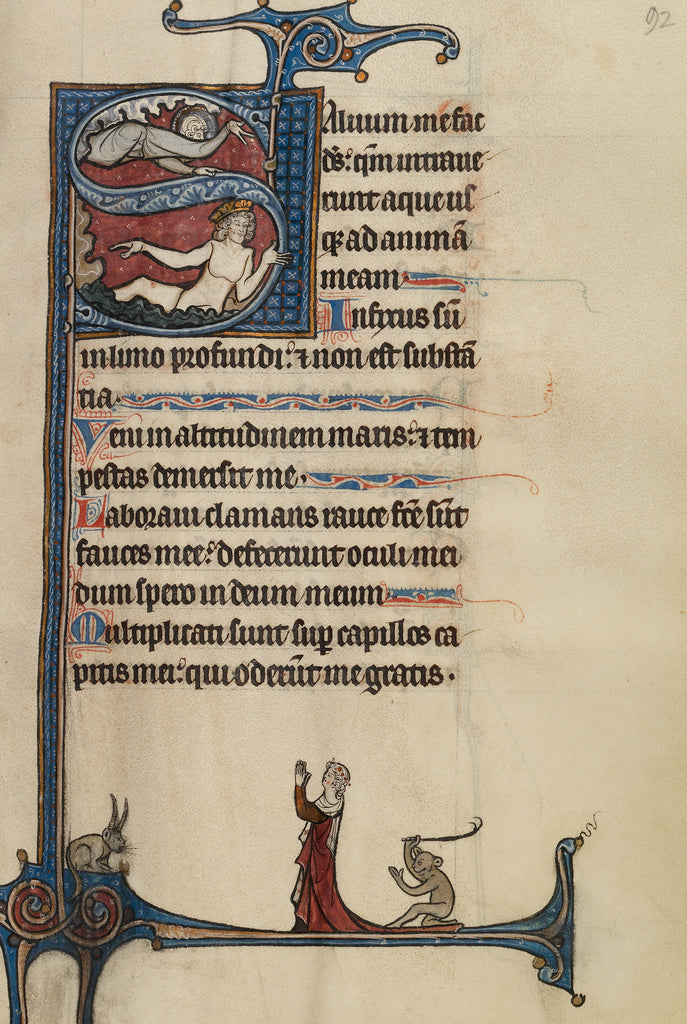 92
Saluum me fac
ds: qm̄ intraue
runt aque us
q̄ ad animā
meam
Infixus sū
in limo profundi: ⁊ non est substā
tia.
Veni in altitudinem maris: ⁊ tem
pestas demersit me.
Laboraui clamans rauce fc̄e sūt
fauces mee: defecerunt oculi mei
dum spero in deum meum
Multiplicati sunt sup̄ capillos ca
pitis mei: qui oderūt me gratis.